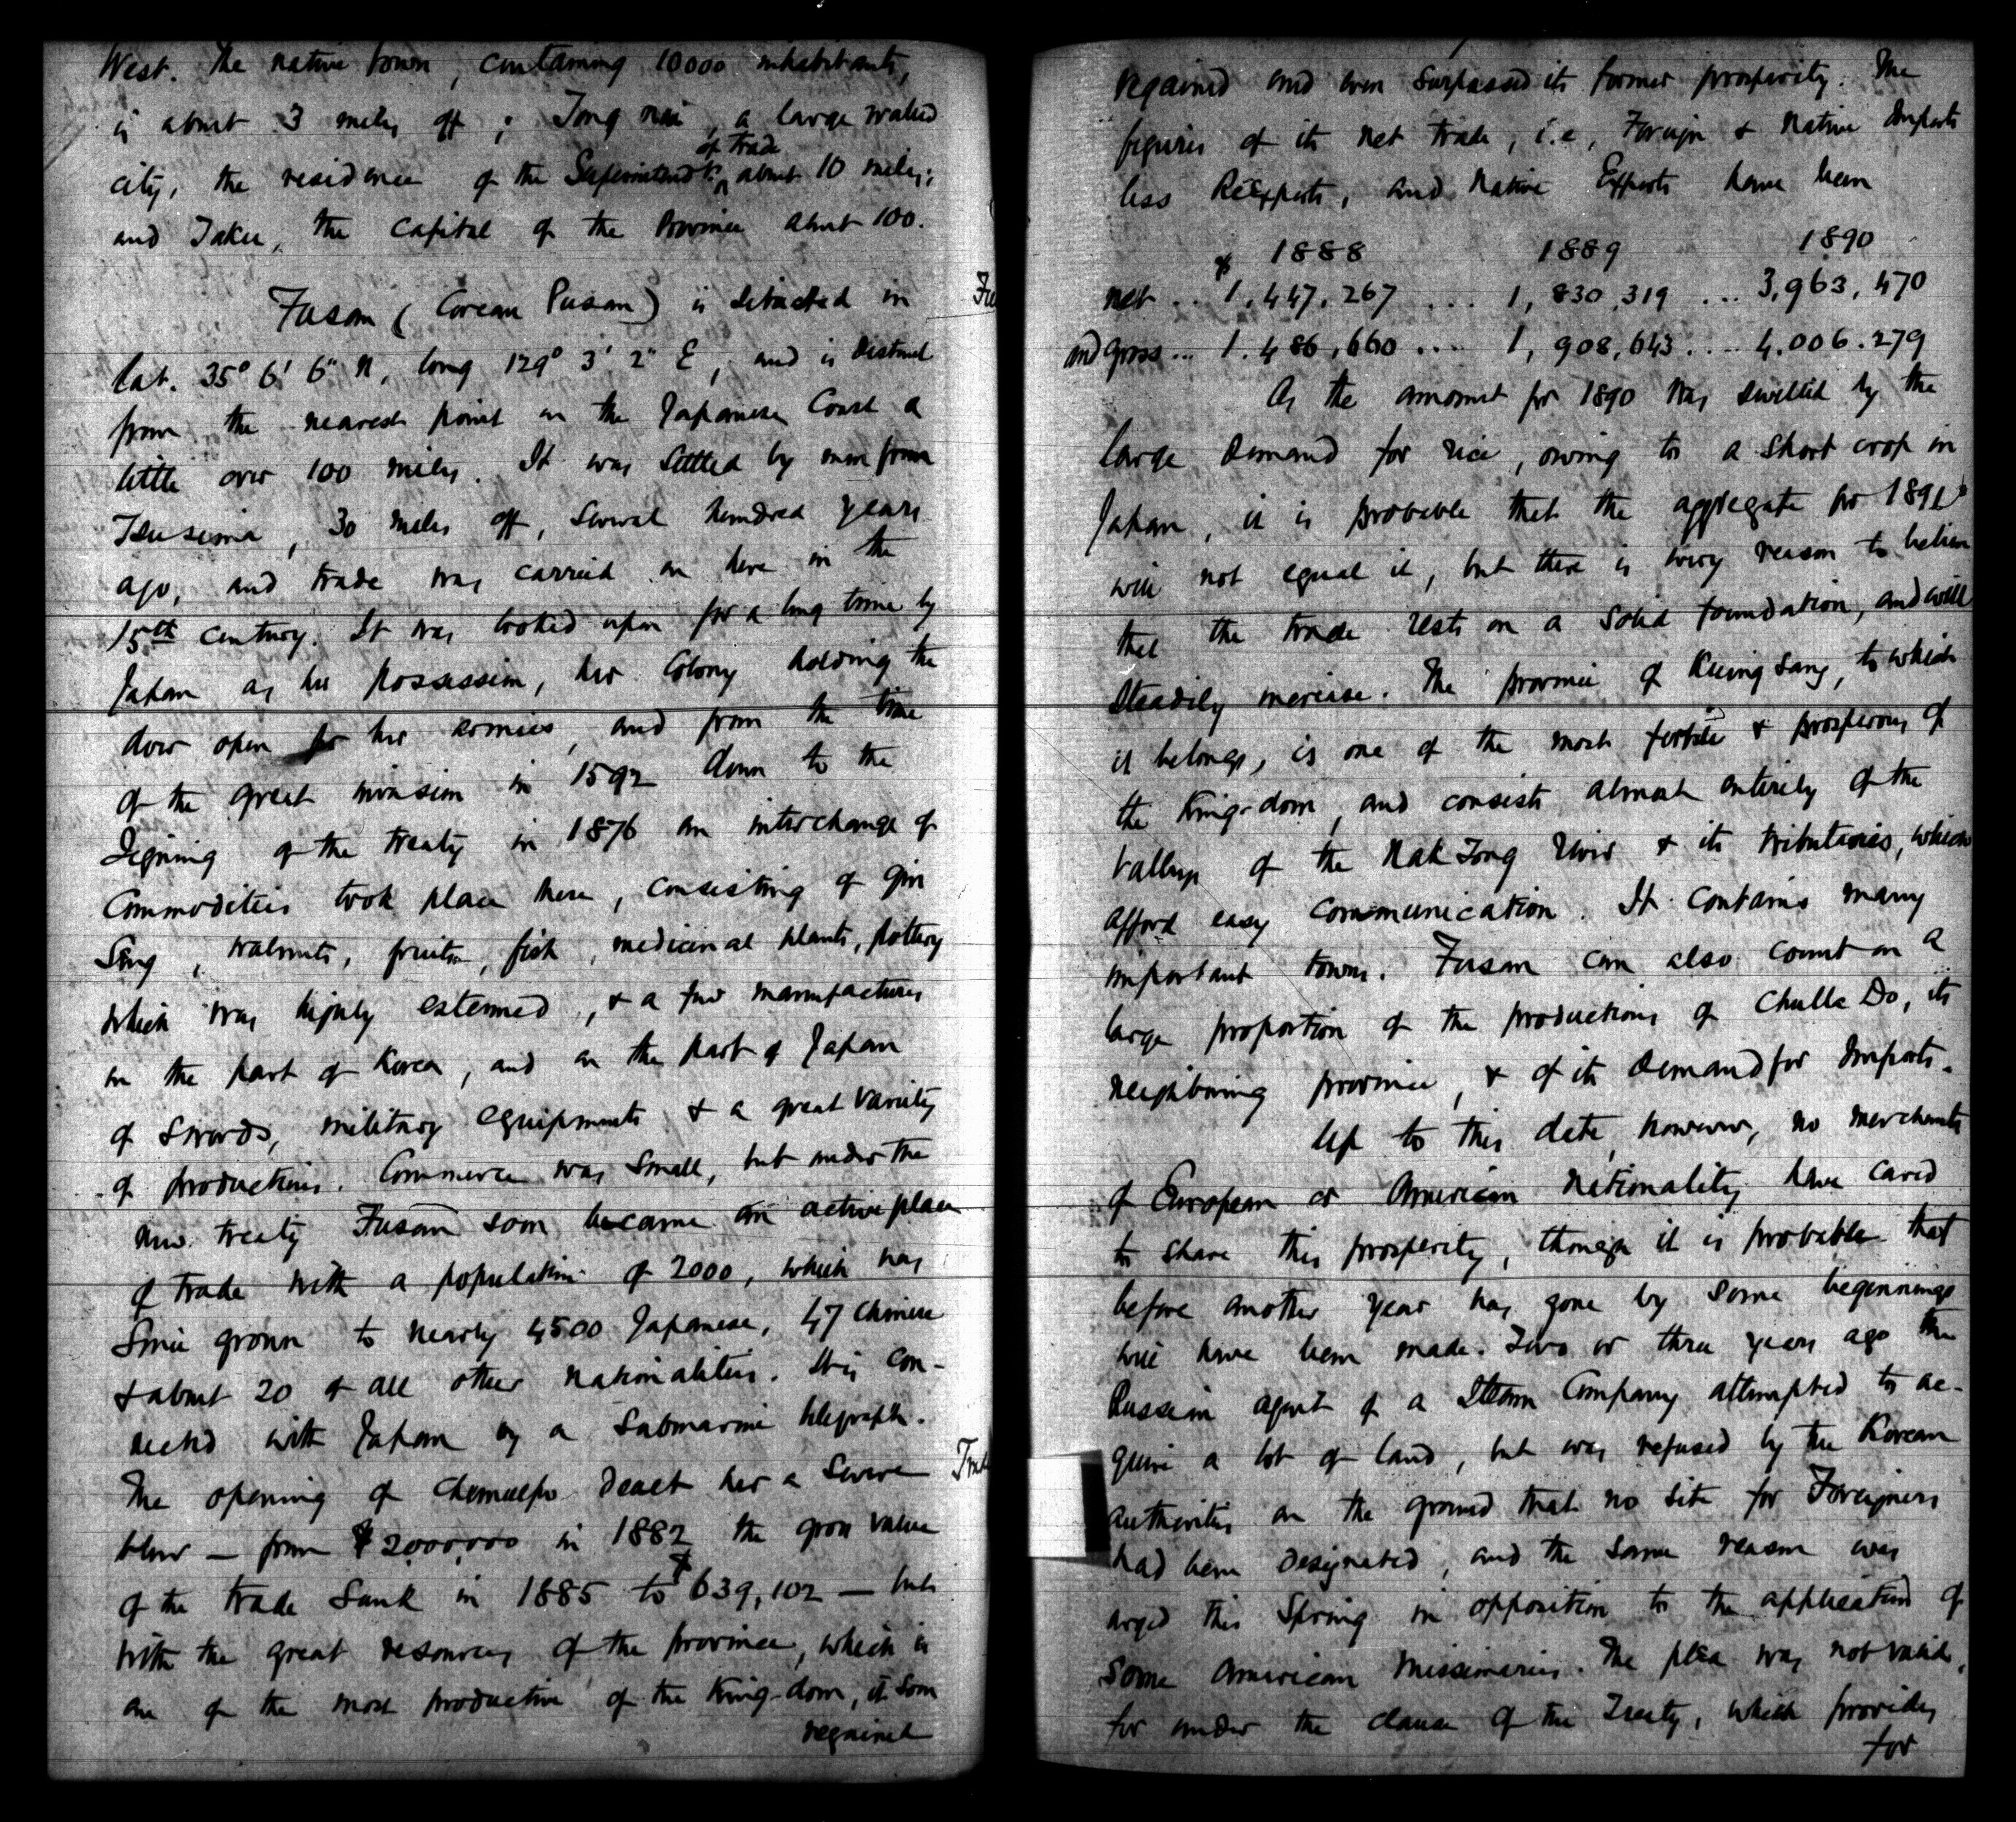 West. The native town, containing 10000 inhabitants,
is about 3 miles off; Tong nai, a large walled
of trade
city, the residence of the Superintendt. about 10 miles;
and Taku, the Capital of the Province about 100.
Fusan (Corean Pusan) is situated in
Lat. 35° 6' 6" N, long 129° 3' 2" E, and is distant
from the nearest point on the Japanese Coast a
little over 100 miles. It was settled by men from
Tsusima, 30 miles off, several hundred years
ago, and trade was carried on here in the
15th century. It was looked upon for a long time by
Japan as her possession, her Colony holding the
door open for her armies, and from the time
of the great invasion in 1592 down to the
signing of the treaty in 1876 an interchange of
Commodities took place here, consisting of gin
Sing, walnuts, fruits, fish, medicinal plants, pottery
which was highly esteemed, & a few manufactures
on the part of Korea, and on the part of Japan
of Swords, military equipments & a great variety
of productions. Commerce was small, but under the
new treaty Fusan soon became an active place
of trade with a population of 2000, which has
since grown to nearly 4500 Japanese, 47 Chinese
& about 20 of all other nationalities. It is con-
nected with Japan by a Submarine telegraph.
The opening of Chemulpo dealt her a severe
blow — from $2,000,000 in 1882 the gross value
of the trade sank in 1885 to $639,102 — but
with the great resources of the province, which is
one of the most productive of the King-dom, it soon
regained
regained and even surpassed its former prosperity. The
figures of its net trade, i.e, Foreign & Native Imports
less ReExports, and Native Exports have been
$ 1888 1889 1890
net .. 1,447,267 ... 1,830,319 ... 3,963,470
and gross ... 1.486,660 .... 1,908,643 .... 4.006.279
As the amount for 1890 was swelled by the
large demand for rice, owing to a short crop in
Japan, it is probable that the aggregate for 1891
will not equal it, but there is every reason to believe
that the trade rests on a solid foundation, and will
steadily increase. The province of Kuing Sang, to which
it belongs, is one of the most fertile & prosperous of
the King-dom, and consists almost entirely of the
valleys of the Nak Tong River & its tributaries, which
afford easy communication. It contains many
important towns. Fusan can also count on a
large proportion of the productions of Chulla Do, its
neighboring province, & of its demand for Imports.
Up to this date, however, no merchants
of European or American nationality have cared
to share this prosperity, though it is probable that
before another year has gone by some beginnings
will have been made. Two or three years ago the
Russian agent of a Steam Company attempted to ac-
quire a lot of land, but was refused by the Korean
authorities on the ground that no site for Foreigners
had been designated, and the same reason was
urged this Spring in opposition to the application of
some American Missionaries. The plea was not valid,
for under the clause of the Treaty, which provides
for